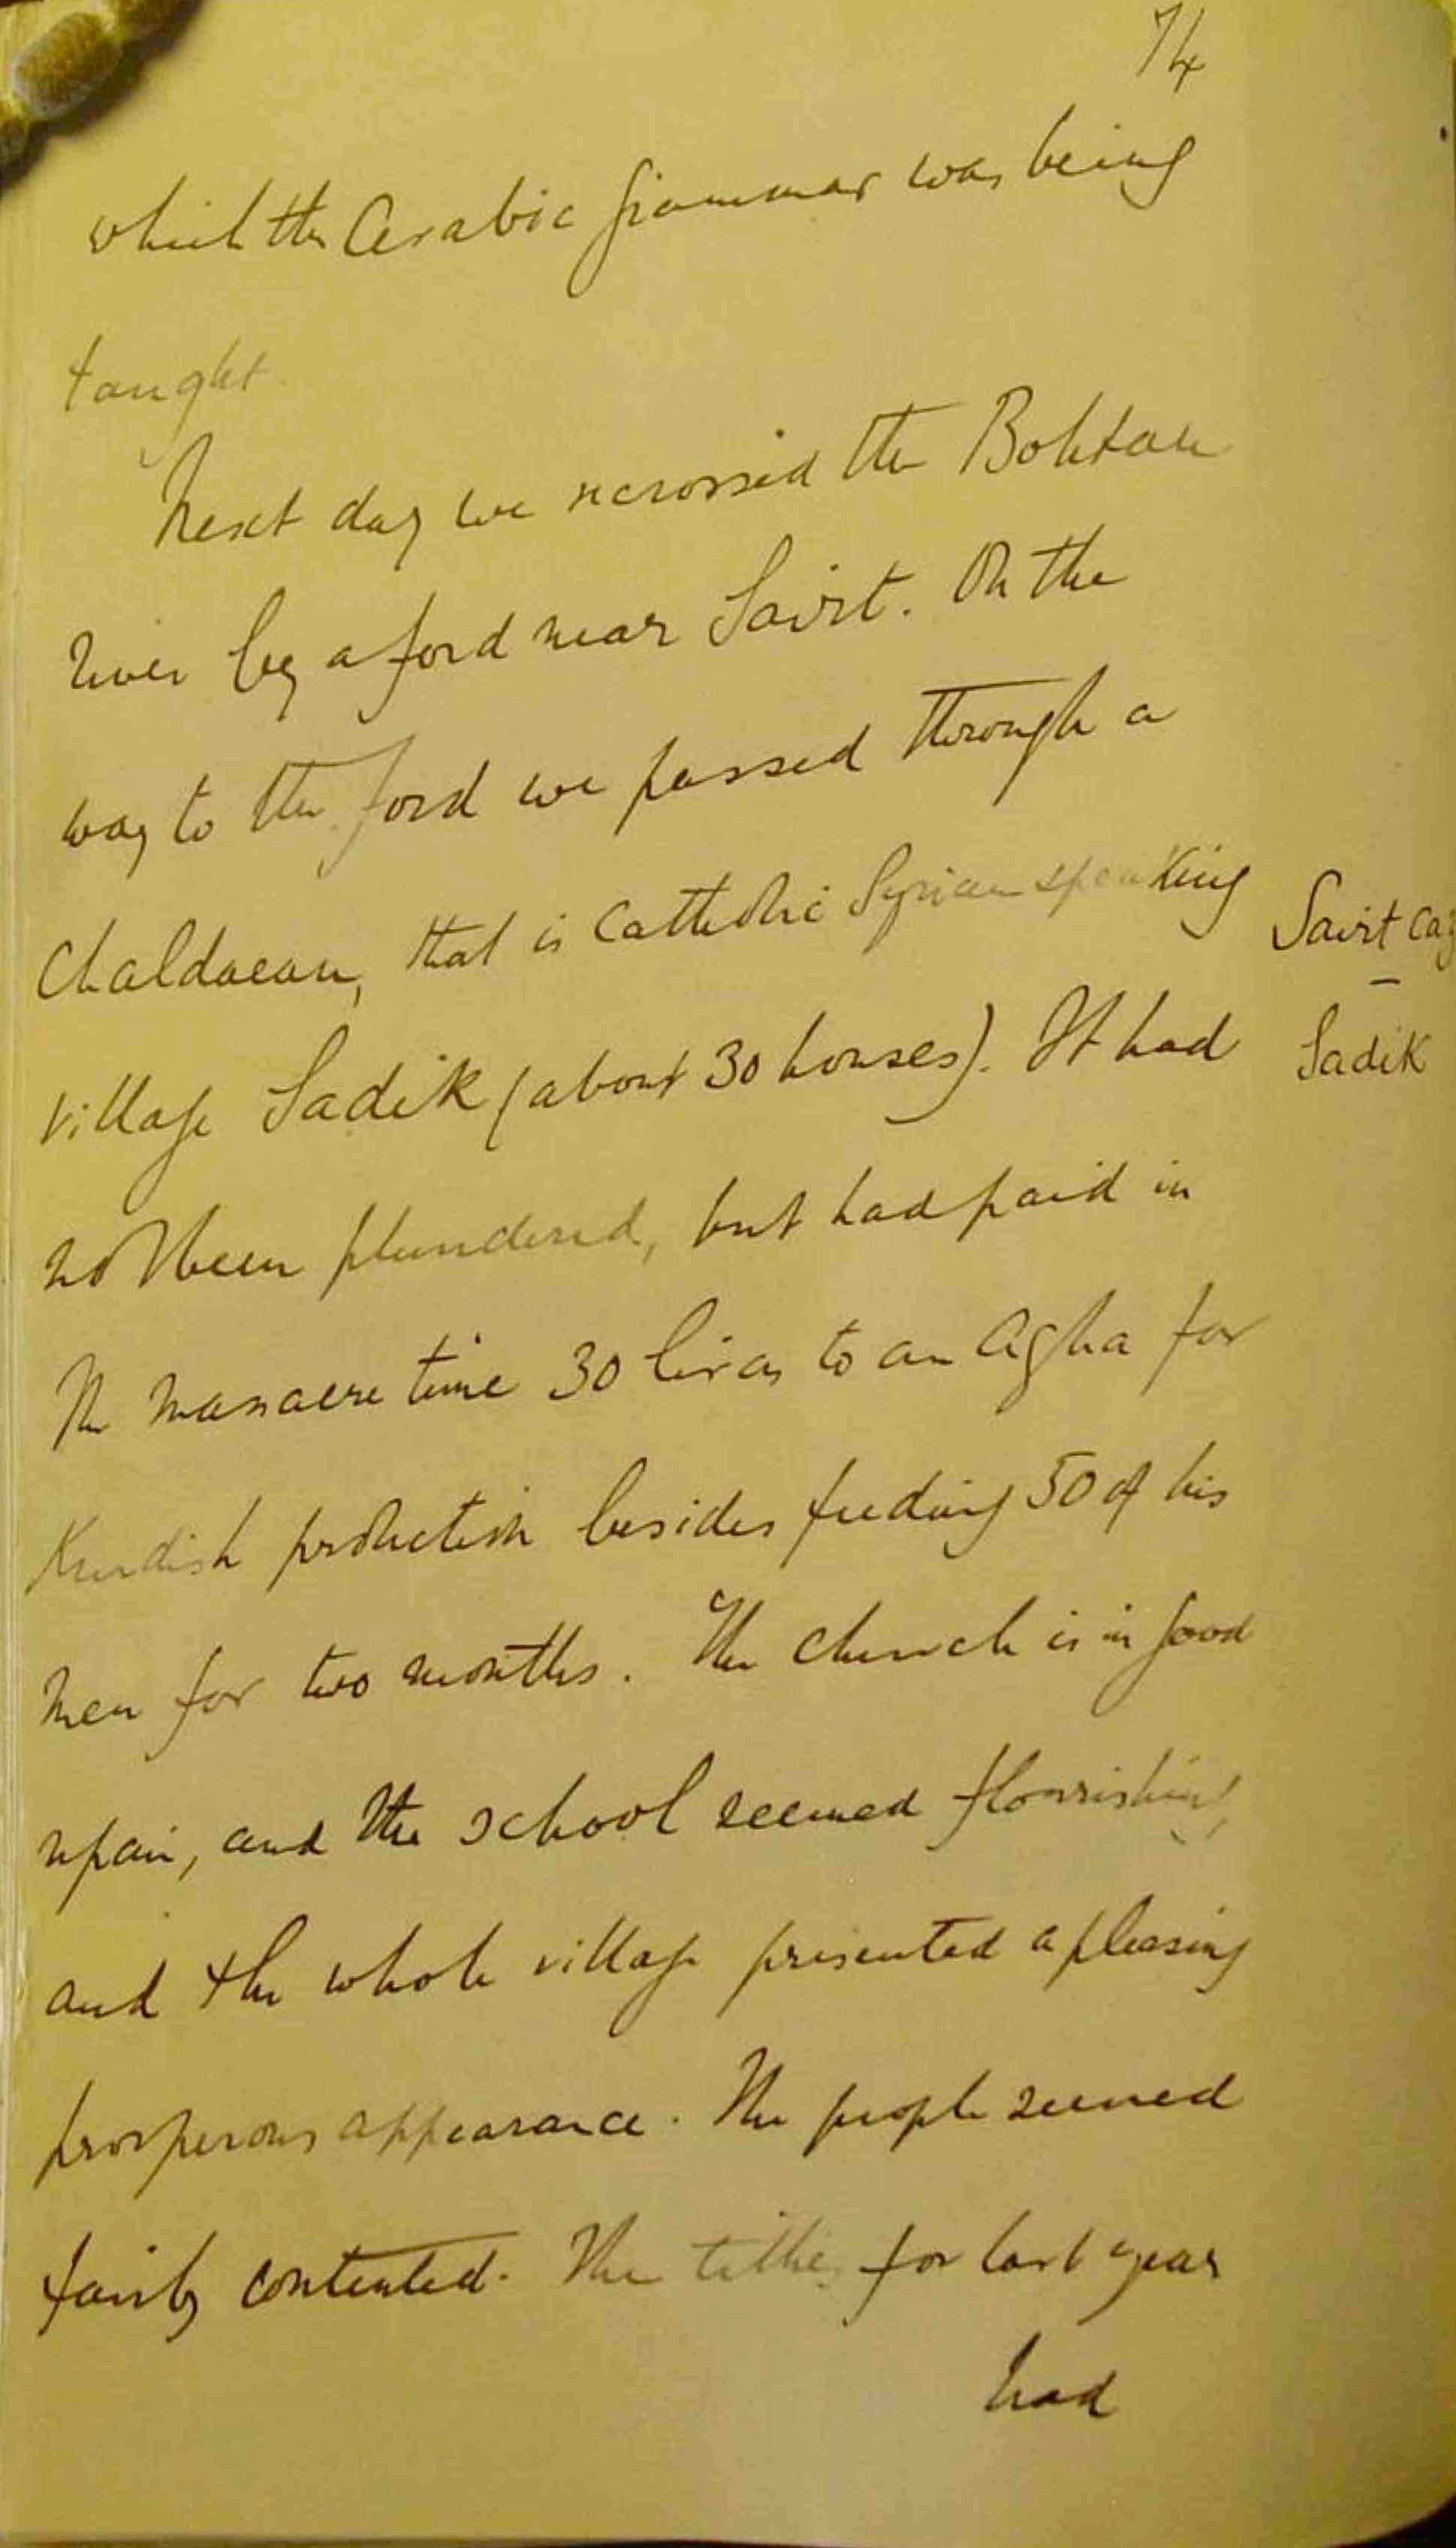 74
which the Arabic Grammar was being
taught
Next day we recrossed the Bohtan
river by a ford near Sairt. On the
way to the ford we passed through a
Chaldaean, that is Catholic Syrian speaking
Sairt Caz
village Sadik (about 30 houses). It had
Sadik
not been plundered, but had paid in
the massacre time 30 liras to an Agha for
Kurdish protection besides feeding 50 of his
men for two months. The church is in good
repair, and the school seemed flourishing,
and the whole village presented a pleasing
prosperous appearance. The people seemed
fairly contented. The tithes for last year
had